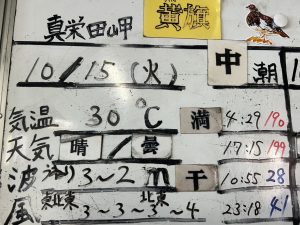 真栄田岬 黄旗
10/15(火) 中 潮
気温 30℃ 満 4:29 190
天気 晴/曇 17:15 199
波 3~2m 干 10:55 28
風 東北東 北東 3~3~3~4 23:18 41